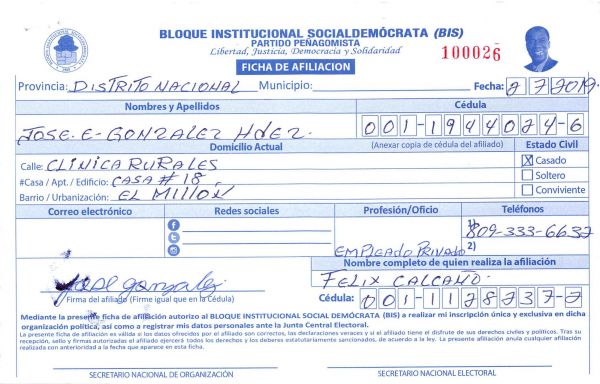 BLOQUE INSTITUCIONAL SOCIALDEMÓCRATA (BIS)
PARTIDO PEÑAGOMISTA
Libertad, Justicia, Democracia y Solidaridad
100026
FICHA DE AFILIACION
Provincia: DISTRITO NACIONAL Municipio: Fecha: 2 7 2019
Nombres y Apellidos Cédula
JOSE. E- GONZALEZ HDEZ. 001-1944074-6
Domicilio Actual (Anexar copia de cédula del afiliado) Estado Civil
Calle: CLINICA RURALES X Casado
#Casa / Apt. / Edificio: CASA # 18. Soltero
Barrio / Urbanización: EL MILLON Conviviente
Correo electrónico Redes sociales Profesión/Oficio Teléfonos
1) 809-333-6632
EMPLEADO PRIVADO 2)
Nombre completo de quien realiza la afiliación
José Gonzalez FELIX CALCAÑO.
Firma del afiliado (Firme igual que en la Cédula) Cédula: 001-1178737-7
Mediante la presente ficha de afiliación autorizo al BLOQUE INSTITUCIONAL SOCIAL DEMÓCRATA (BIS) a realizar mi inscripción única y exclusiva en dicha
organización política, así como a registrar mis datos personales ante la Junta Central Electoral.
La presente ficha de afiliación es válida si los datos ofrecidos por el afiliado son correctos, las declaraciones veraces y si el afiliado tiene el disfrute de sus derechos civiles y políticos. Tras su
recepción, sello y firmas autorizadas el afiliado ejercerá todos los derechos y los deberes estatutariamente sancionados, de acuerdo a la ley. La presente afiliación anula cualquier afiliación
realizada con anterioridad a la fecha que aparece en esta ficha.
SECRETARIO NACIONAL DE ORGANIZACIÓN SECRETARIO NACIONAL ELECTORAL